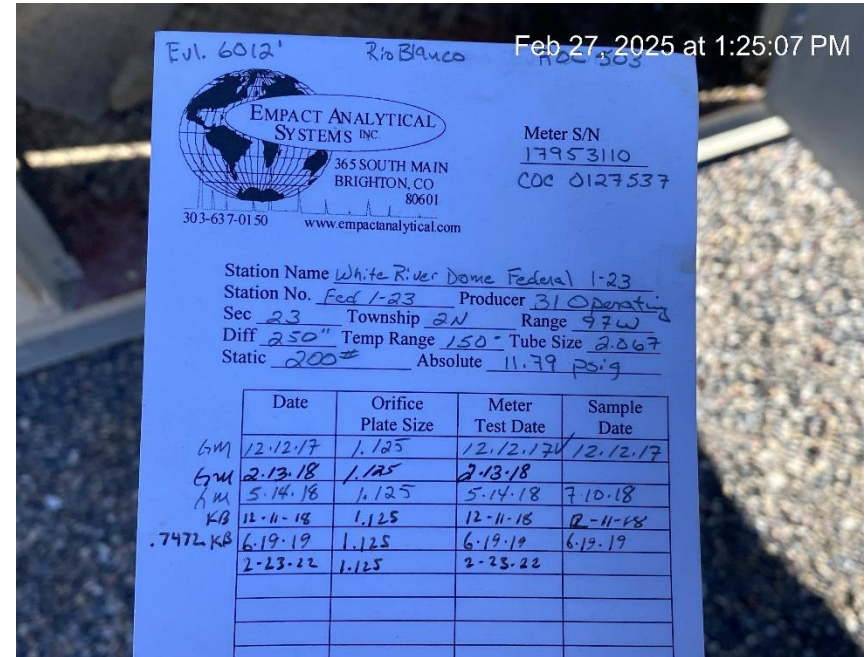 Feb 27, 2025 at 1:25:07 PM
Evl. 6012' Rio Blanco 303
EMPACT ANALYTICAL
SYSTEMS INC.
365 SOUTH MAIN
BRIGHTON, CO
80601
303-637-0150 www.empactanalytical.com
Meter S/N
17953110
COC 0127537
Station Name White River Dome Federal 1-23
Station No. Fed 1-23 Producer 31 Operating
Sec 23 Township 2N Range 97W
Diff 250" Temp Range 150° Tube Size 2.067
Static 200# Absolute 11.79 psig
Date Orifice Plate Size Meter Test Date Sample Date
GM 12.12.17 1.125 12.12.17 12.12.17
GM 2.13.18 1.125 2.13.18
GM 5.14.18 1.125 5.14.18 7.10.18
KB 12-11-18 1.125 12-11-18 12-11-18
.7472 KB 6.19.19 1.125 6.19.19 6.19.19
2-23-22 1.125 2-23-22